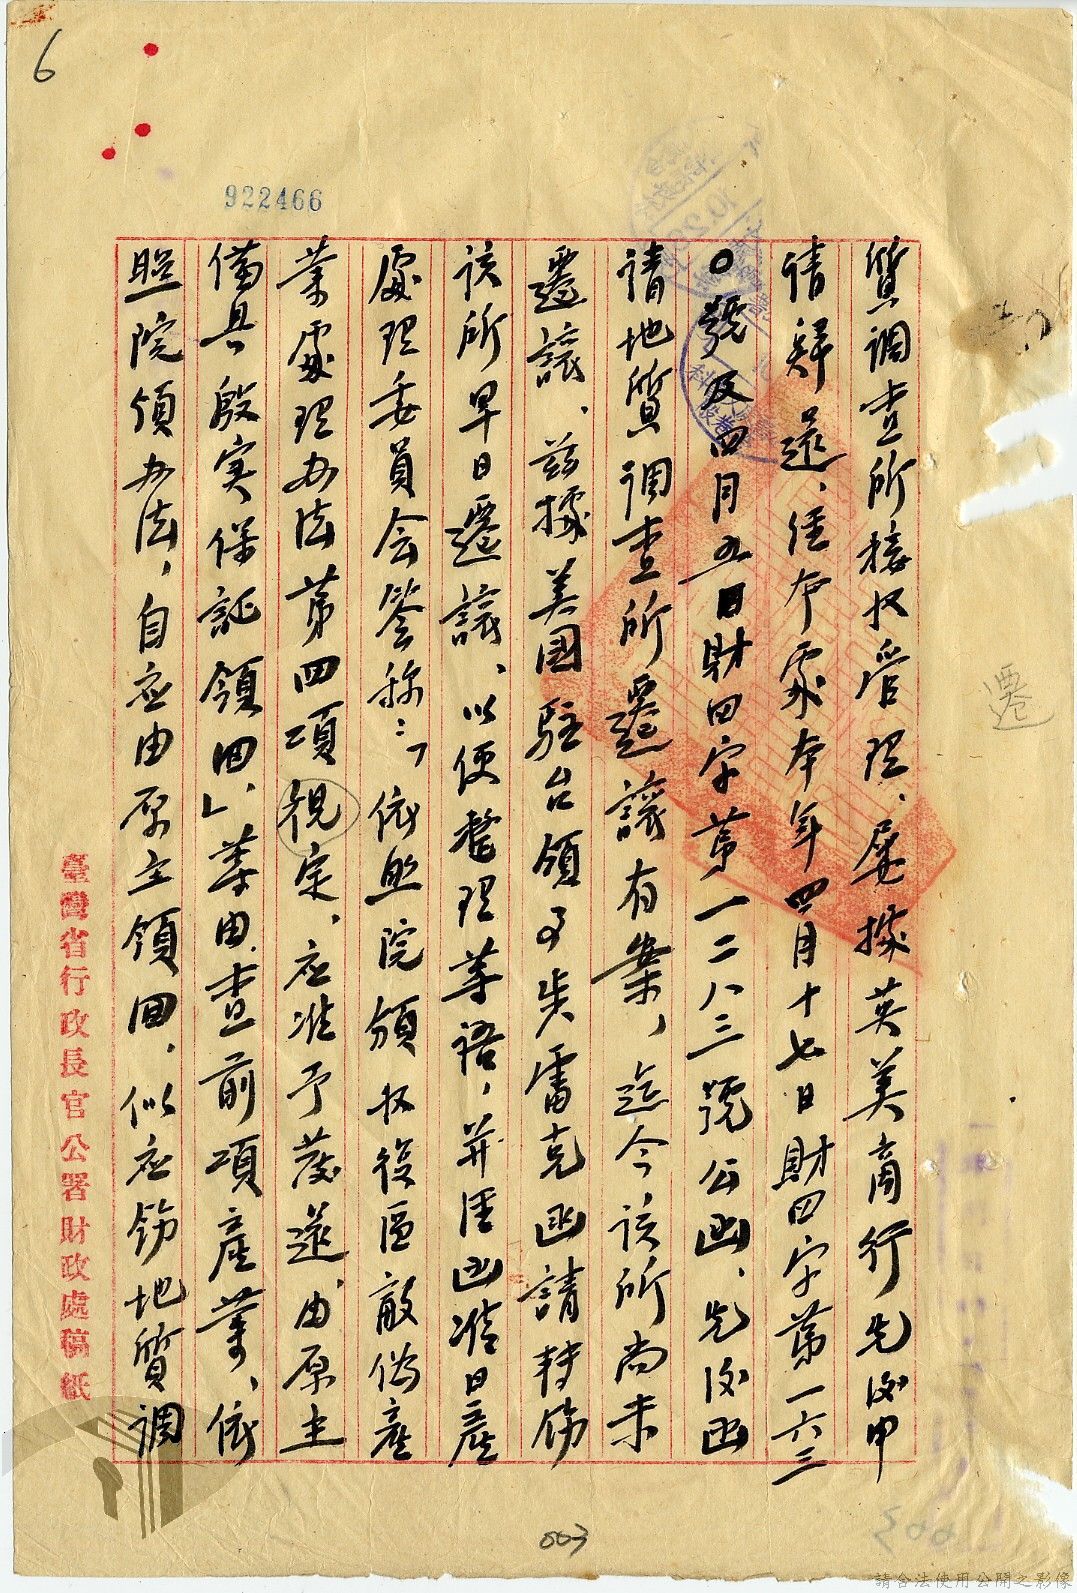 6
922466
質調查所接收管理、屢據英美商行先後申
請歸還、經本處本年四月十七日財四字第一六三
〇號及四月九日財四字第一二八三號公函、先後函
請地質調查所遷讓有案，迄今該所尚未
遷讓、茲據美國駐台領事步雷克函請轉飭
該所早日遷讓、以便整理等語，并經函准日產
處理委員会簽称：「依照院頒收復區敵偽產
業處理办法第四項視定，应准予發還、由原主
備具殷实保証領回」、等由、查前項產業、依
照院頒办法，自应由原主領回、似应飭地質調
遷
臺灣省行政長官公署財政處稿紙
003
請合法使用公開之影像